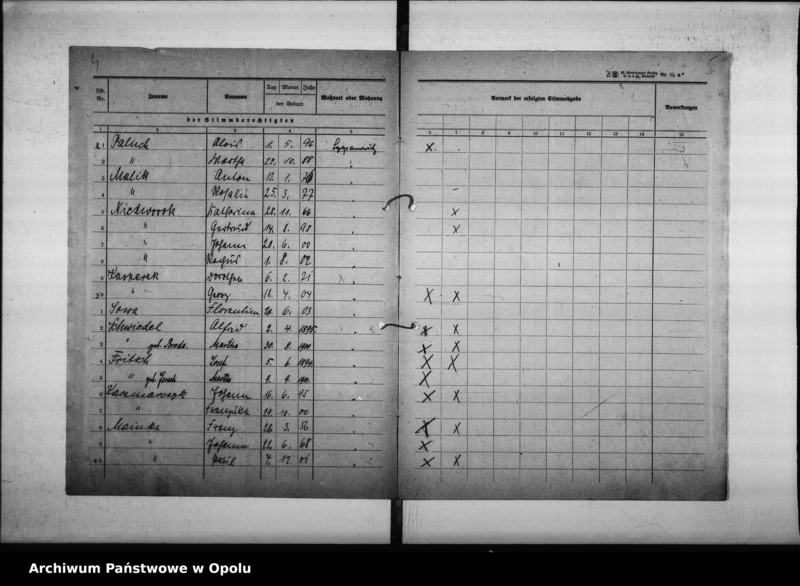 4
5
Lfd. Nr. Zuname Vorname Tag Monat Jahr Wohnort oder Wohnung Vermerk der erfolgten Stimmabgabe Bemerkungen
der Geburt
der Stimmberechtigten
1 2 3 4 5 6 7 8 9 10 11 12 13 14 15
21 Paluch Alois 1. 5. 96 X
2 " Martha 22. 10. 08
3 Malik Anton 13. 1. 76
4 " Rosalie 25. 3. 77
5 Nieswororok Katharina 28. 11. 66 X
6 " Gertrud 14. 8. 98 X
7 " Johann 28. 6. 00
8 " 1. 8. 02
9 Kasperek Dorothea 6. 2. 21
30 " Georg 18. 4. 04 X X
1 Sowa Florentine 20. 6. 03
2 Schwiedel Alfred 2. 4. 1895. X X
3 " geb. Martha 30. 8. X X
4 Fritsch Josef 5. 6. X X
5 " geb. Martha 9. 9. X
6 Kaczmarczyk Johann 16. 6. 95 X X
7 " Franziska 29. 10. 00
8 Mainka Franz 26. 3. 56 X X
9 " Johanna 22. 6. 68 X
40 " 7. 12. 01 X X
Archiwum Państwowe w Opolu